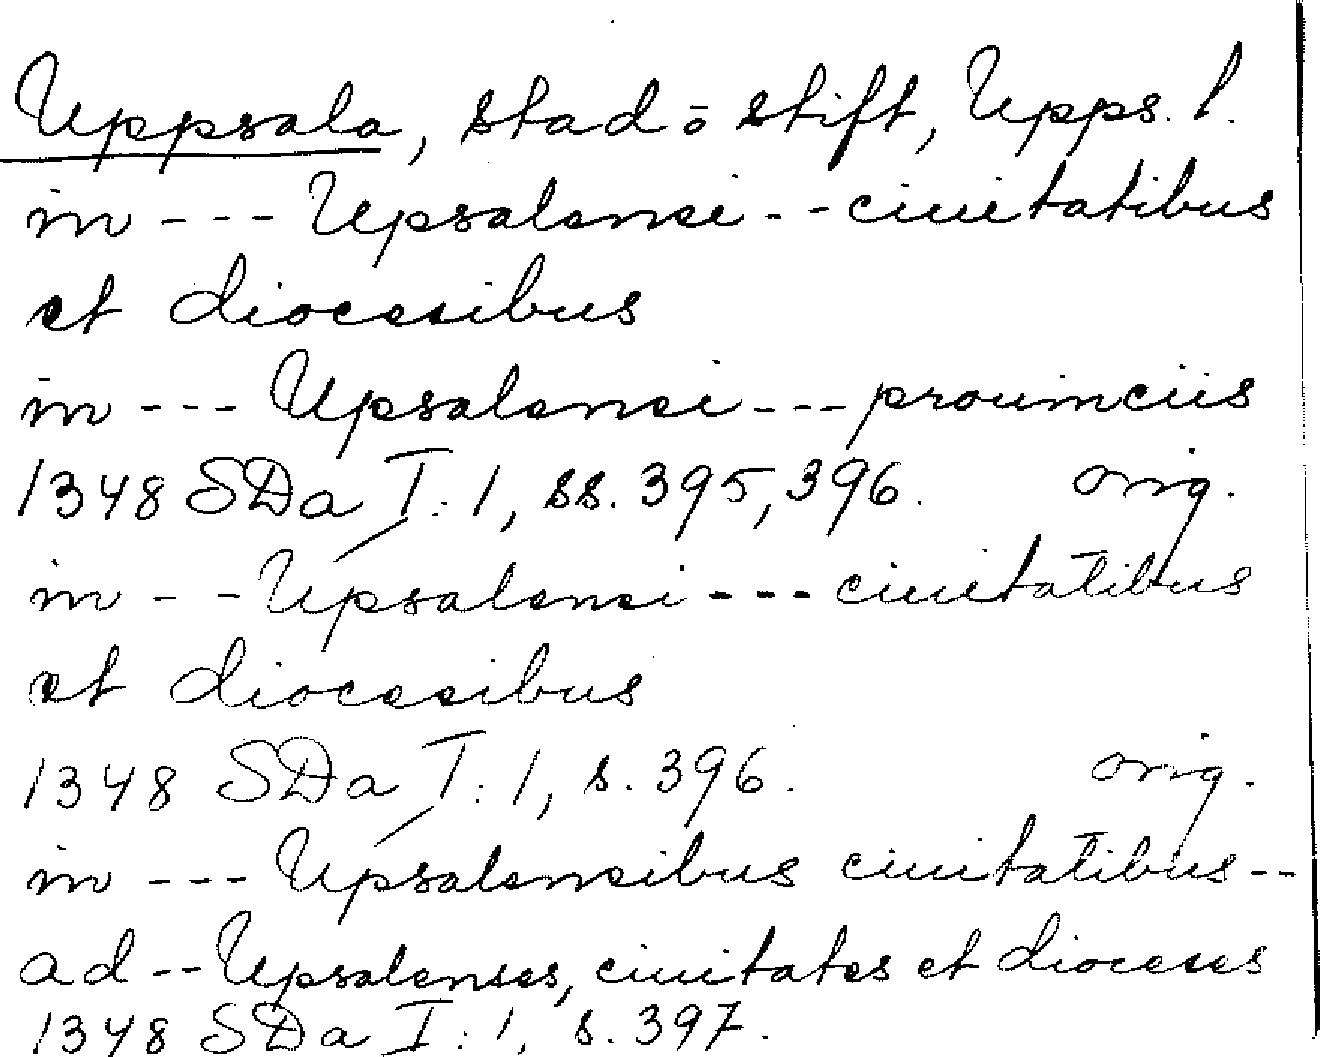 Uppsala, stad o stift, Upps. l.
in --- Upsalensi -- ciuitatibus
et diocesibus
in --- Upsalensi --- prouinciis
1348 SDa I:1, ss. 395, 396. orig.
in -- Upsalensi --- ciuitatibus
et diocesibus
1348 SDa I:1, s. 396. orig.
in --- Upsalensibus ciuitatibus --
ad -- Upsalenses, ciuitates et dioceses
1348 SDa I:1, s. 397.